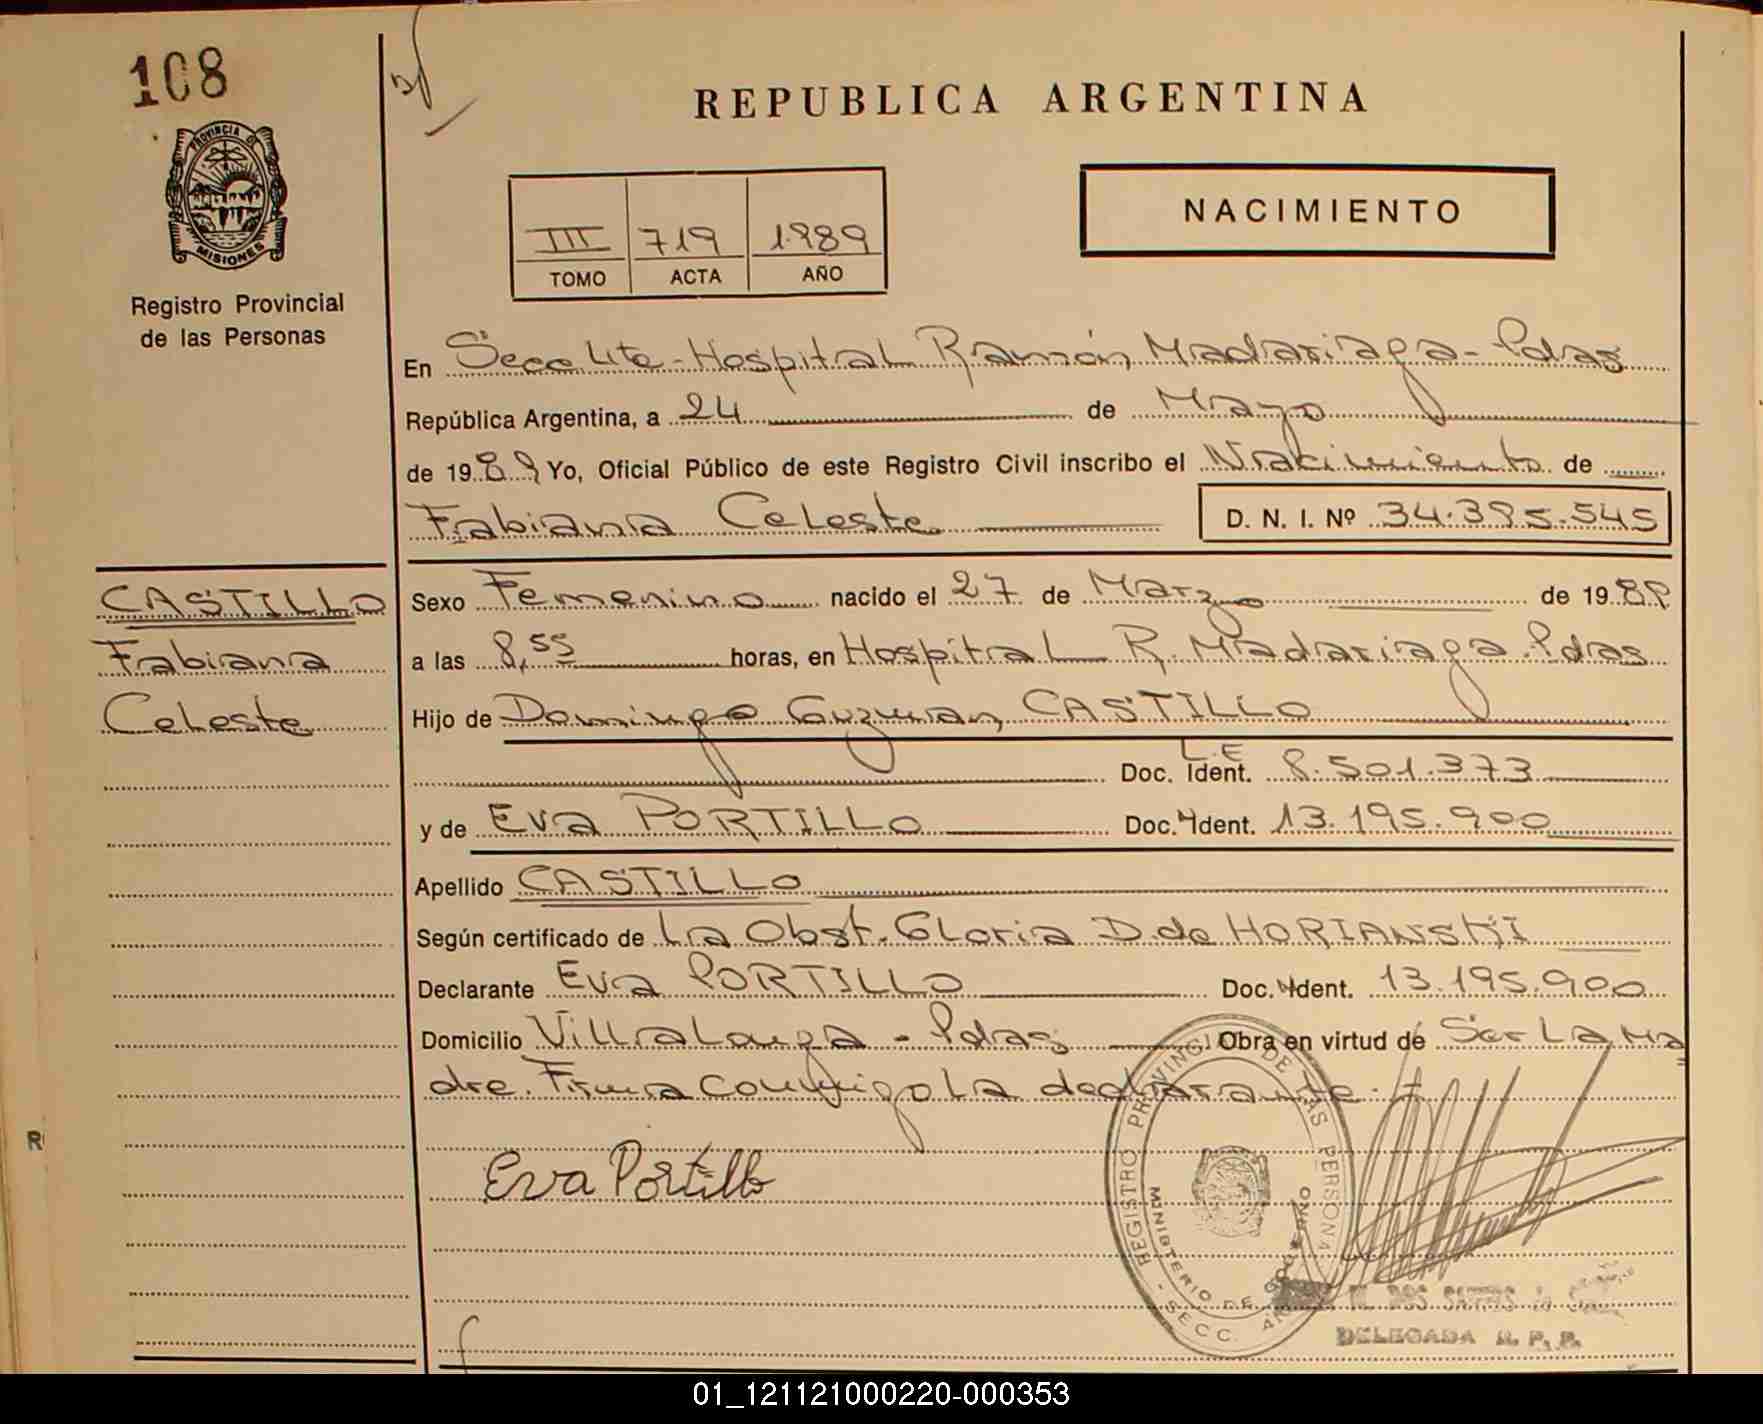 108
REPUBLICA ARGENTINA
PROVINCIA DE
MISIONES
Registro Provincial
de las Personas
III 719 1989
TOMO ACTA AÑO
NACIMIENTO
En Secc 4ta-Hospital Ramón Madariaga-Pdas
República Argentina, a 24 de Mayo
de 1989 Yo, Oficial Público de este Registro Civil inscribo el Nacimiento de
Fabiana Celeste D. N. I. Nº 34.395.545
CASTILLO
Fabiana
Celeste
Sexo Femenino nacido el 27 de Marzo de 1989
a las 8,55 horas, en Hospital R. Madariaga. Pdas
Hijo de Domingo Guzman CASTILLO
L.E
Doc. Ident. 8.501.373
y de Eva PORTILLO Doc. Ident. 13.195.900
Apellido CASTILLO
Según certificado de La Obst. Gloria D. de HORIANSKI
Declarante Eva PORTILLO Doc. Ident. 13.195.900
Domicilio Villalonga - Pdas Obra en virtud de Ser La Ma
dre. Firma conmigo La declarante.
Eva Portillo
REGISTRO PROVINCIAL DE LAS PERSONAS
MINISTERIO DE GOBIERNO
SECC.
DOS SANTOS de
DELEGADA R. P. P.
01_121121000220-000353